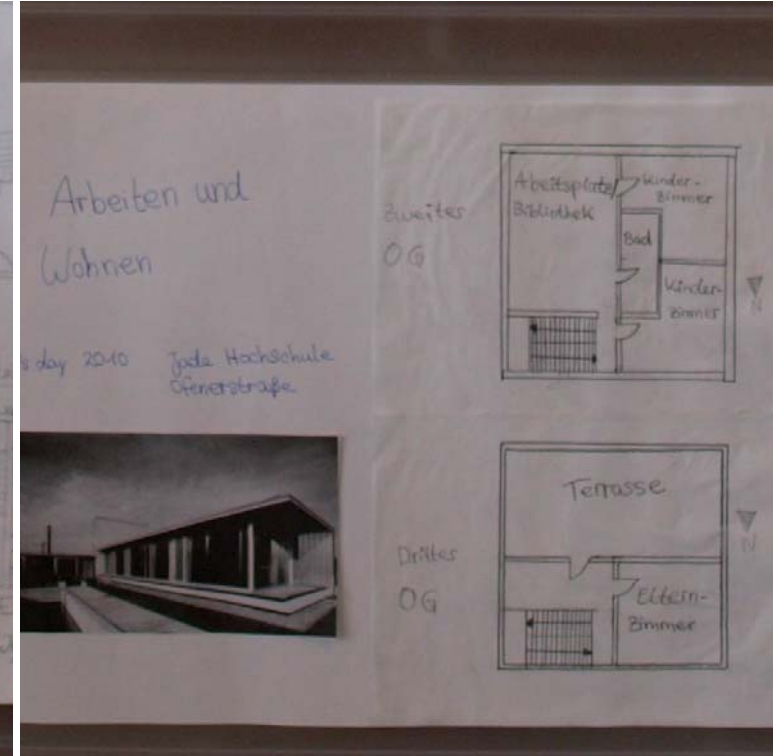 Arbeiten und
Wohnen
's day 2010 Jade Hochschule
Ofenerstraße
Zweites
OG
Arbeitsplatz
Bibliothek
Kinder-
zimmer
Bad
Kinder-
zimmer
N
Drittes
OG
Terrasse
Eltern-
zimmer
N